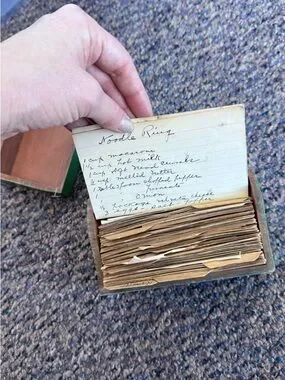 Noodle Ring
1 cup macaroni
1½ cup hot milk
1 cup soft bread crumbs
½ cup melted butter
1 tablespoon chopped pepper
Pimento
Onion